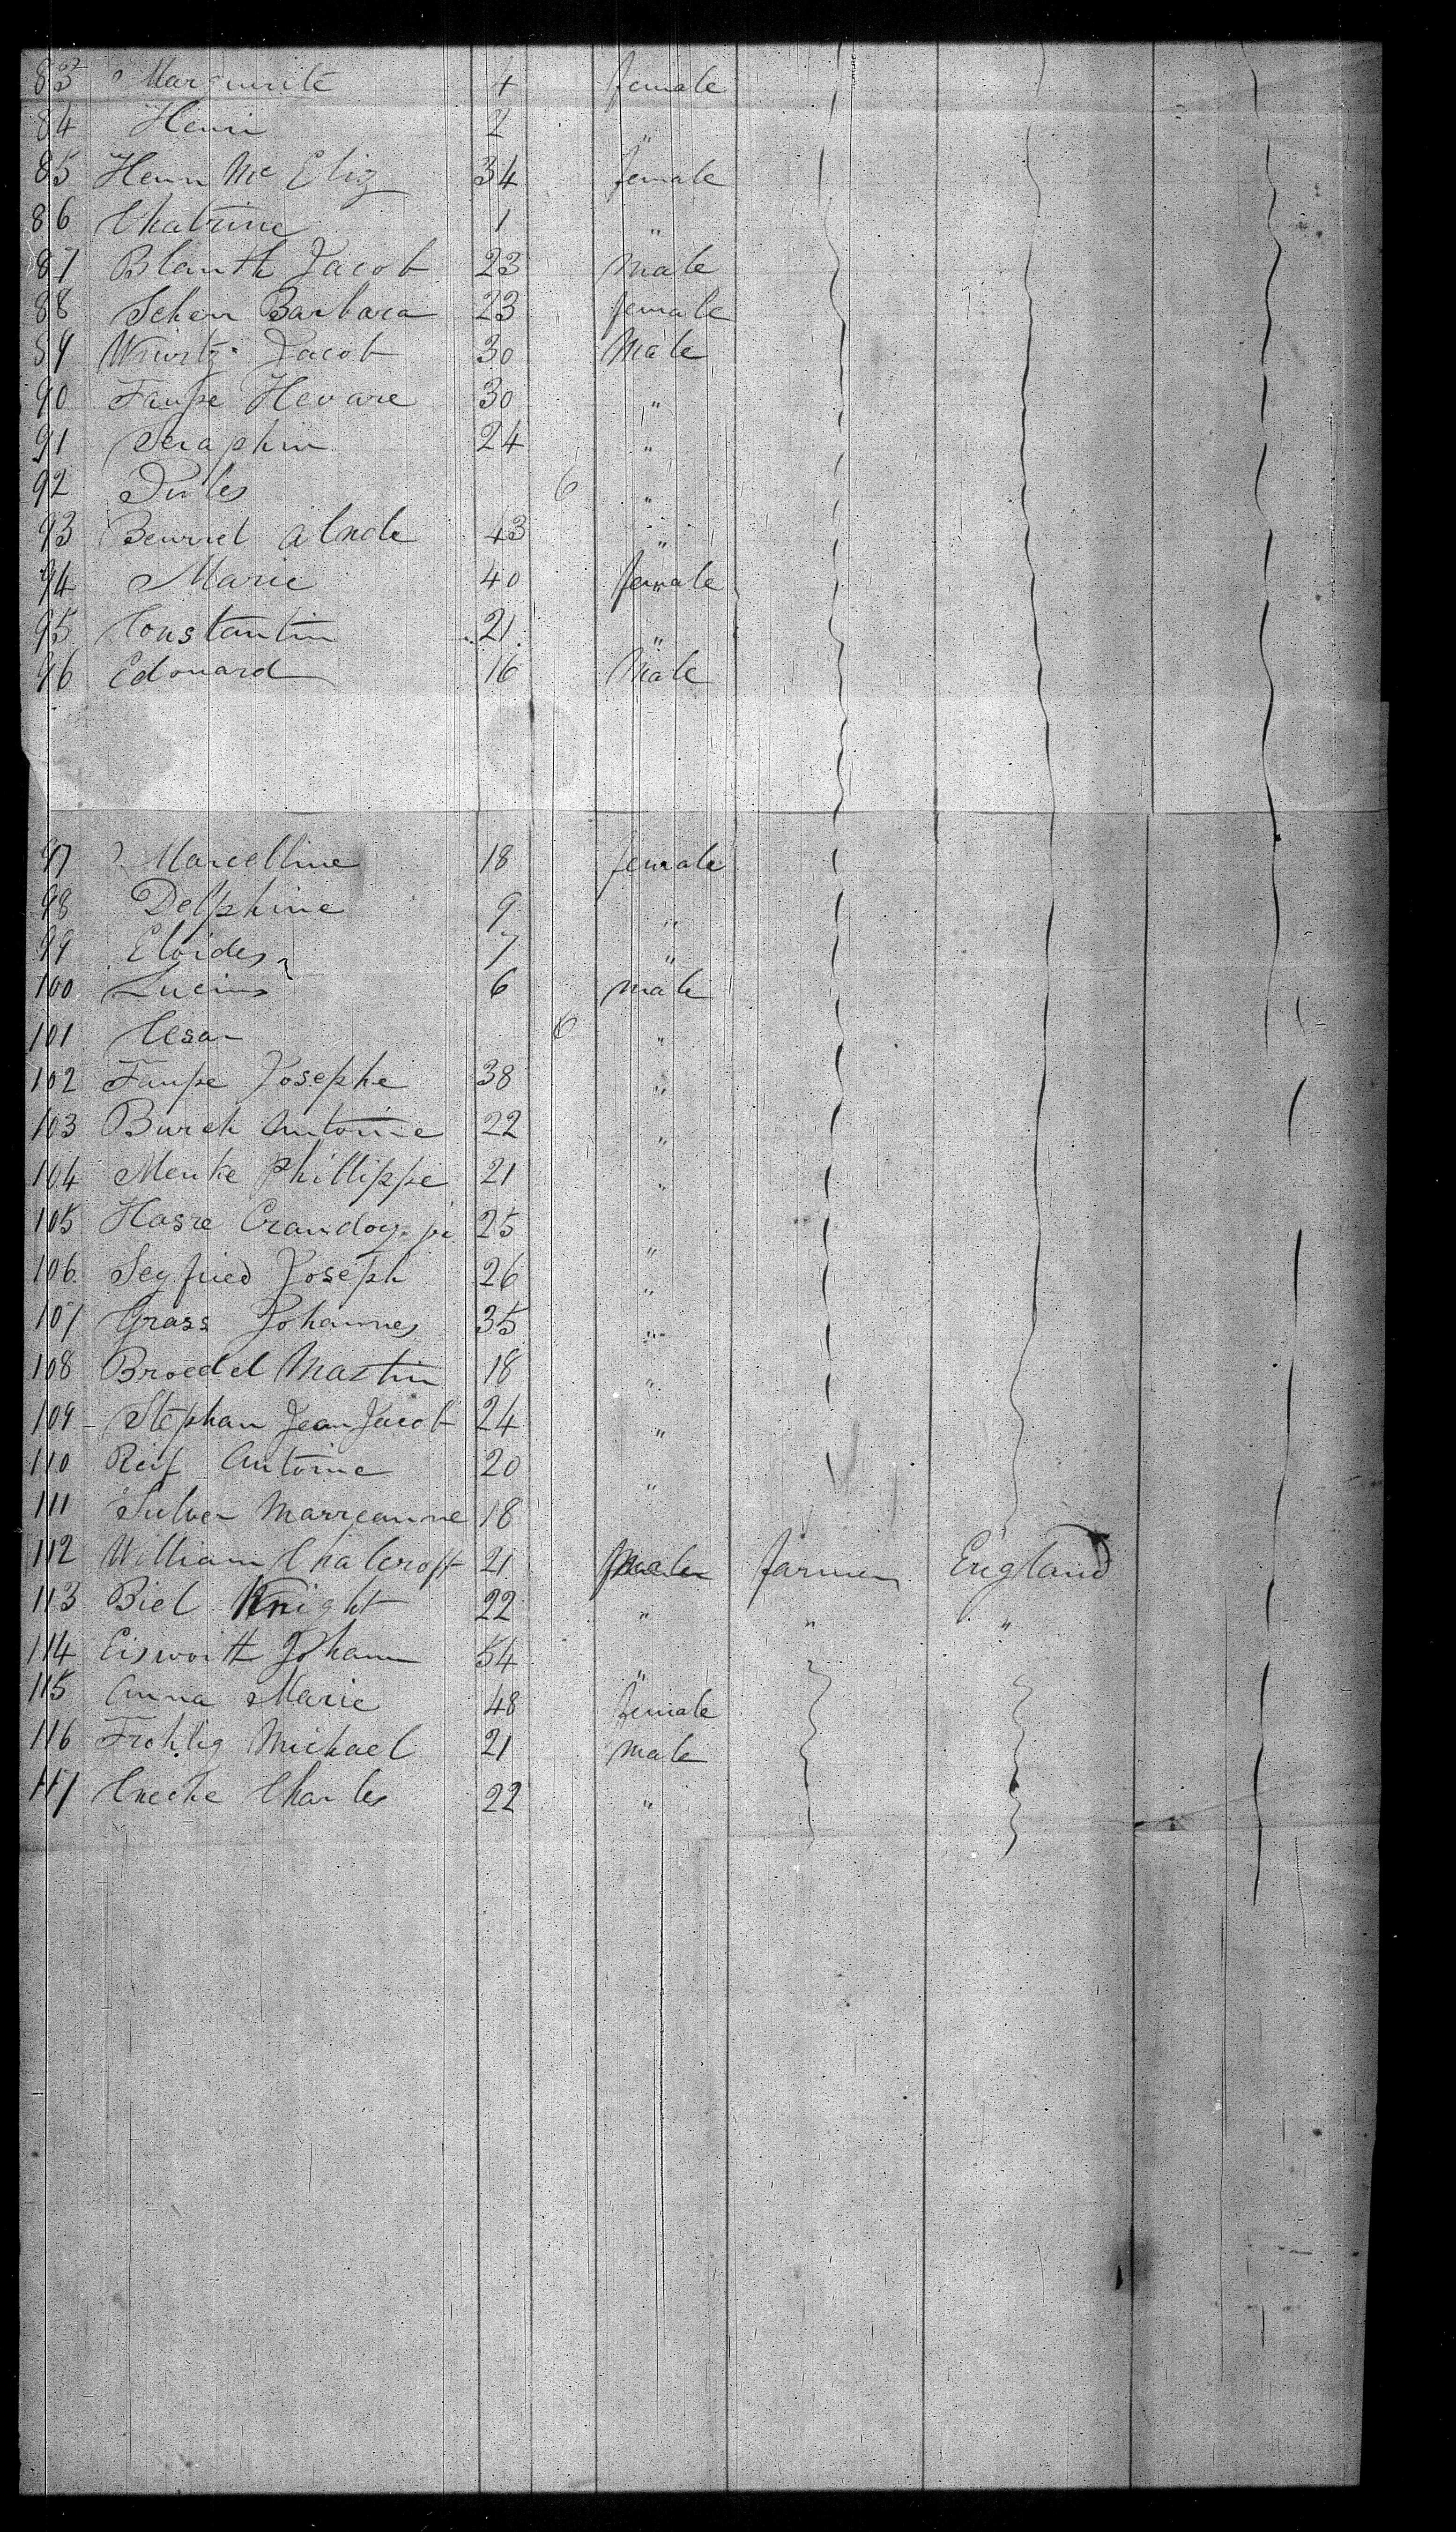 83 Marguirite 4 female
84 Henri 2 "
85 Henn Mc Eliz 34 female
86 Chatrine 1 "
87 Blauth Jacob 23 male
88 Scherr Barbara 23 female
89 Wiurtz Jacob 30 Male
90 Faupe Hevare 30 "
91 Seraphin 24 "
92 Jules 6 "
93 Beurret 43 "
94 Marie 40 female
95 Constantin 21 "
96 Edouard 16 Male
97 Marcelline 18 female
98 Delphine 9 "
99 Eloides 7 "
100 Lucius 6 male
101 Cesar 6 "
102 Faupe Josephe 38 "
103 Burch Antoine 22 "
104 Menke Phillippe 21 "
105 Hasre 25 "
106 Segfried Joseph 26 "
107 Grass Johannes 35 "
108 Broedel Martin 18 "
109 Stephan Jean Jacob 24 "
110 Reif Antoine 20 "
111 Sulver Marreanne 18
112 William Chalcroft 21 farmer England
113 Biel Knight 22 " " "
114 Eisworth Johann 54 "
115 Anna Marie 48 female
116 Frohlig Michael 21 male
117 Creche Charles 22 "